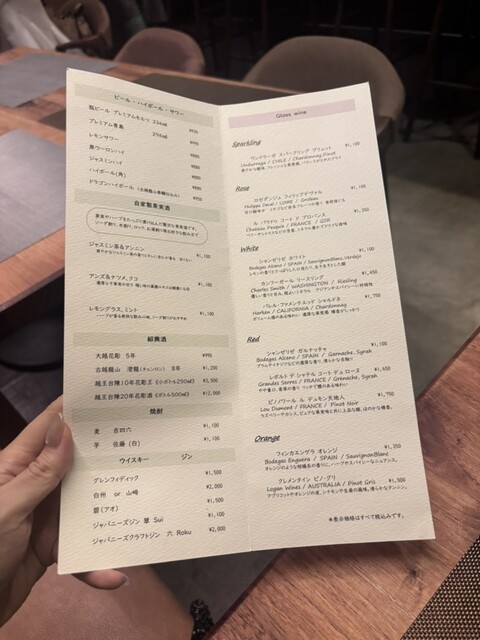 ビール・ハイボール・サワー
瓶ビール プレミアムモルツ 334ml ¥935
プレミアム青島 296ml ¥990
レモンサワー ¥880
黒ウーロンハイ ¥880
ジャスミンハイ ¥880
ハイボール(角) ¥880
ドラゴンハイボール ¥880
自家製薬膳酒
ジャスミン茶&アンニン ¥1,100
アンズ&ナツメ、クコ ¥1,100
レモングラス、ミント ¥1,100
紹興酒
大越花彫 5年 ¥990
古越龍山 澄龍(チェンロン) 8年 ¥1,200
越王台陳10年花彫王 (小ボトル250ml) ¥3,500
越王台陳20年花彫酒 (ボトル500ml) ¥12,000
焼酎
麦 吉四六 ¥1,100
芋 佐藤 (白) ¥1,100
ウイスキー ジン
グレンフィディック ¥1,500
白州 or 山崎 ¥2,000
碧(アオ) ¥1,500
ジャパニーズジン 翠 Sui ¥1,100
ジャパニーズクラフトジン 六 Roku ¥2,000
Glass wine
Sparkling
ウンドラーガ スパークリング ブリュット ¥1,100
Undurraga / CHILE / Chardonnay, Pinot
Rose
ロゼダンジュ フィリップドヴァル ¥1,100
Philippe Deval / LOIRE / Grolleau
ル パラドゥ コート ド プロバンス ¥1,350
Chateau Pesquie / FRANCE / GSR
White
シャンゼリゼ ホワイト ¥1,100
Bodegas Alceno / SPAIN / SauvignonBlanc, Verdejo
カンフーガール リースリング ¥1,450
Charles Smith / WASHINGTON / Riesling
バレル・ファメンテスッド シャルドネ ¥1,700
Harken / CALIFORNIA / Chardonnay
Red
シャンゼリゼ ガルナッチャ ¥1,100
Bodegas Alceno / SPAIN / Garnache, Syrah
レボルト デ シャテル コート デュ ローヌ ¥1,450
Grandes Serres / FRANCE / Grenache, Syrah
ピノノワール ル デュモン天地人 ¥1,750
Lou Dumont / FRANCE / Pinot Noir
Orange
フィンカエンゲラ オレンジ ¥1,350
Bodegas Enguera / SPAIN / SauvignonBlanc
クレメンタイン ピノ・グリ ¥1,500
Logan Wines / AUSTRALIA / Pinot Gris
※表示価格はすべて税込みです。